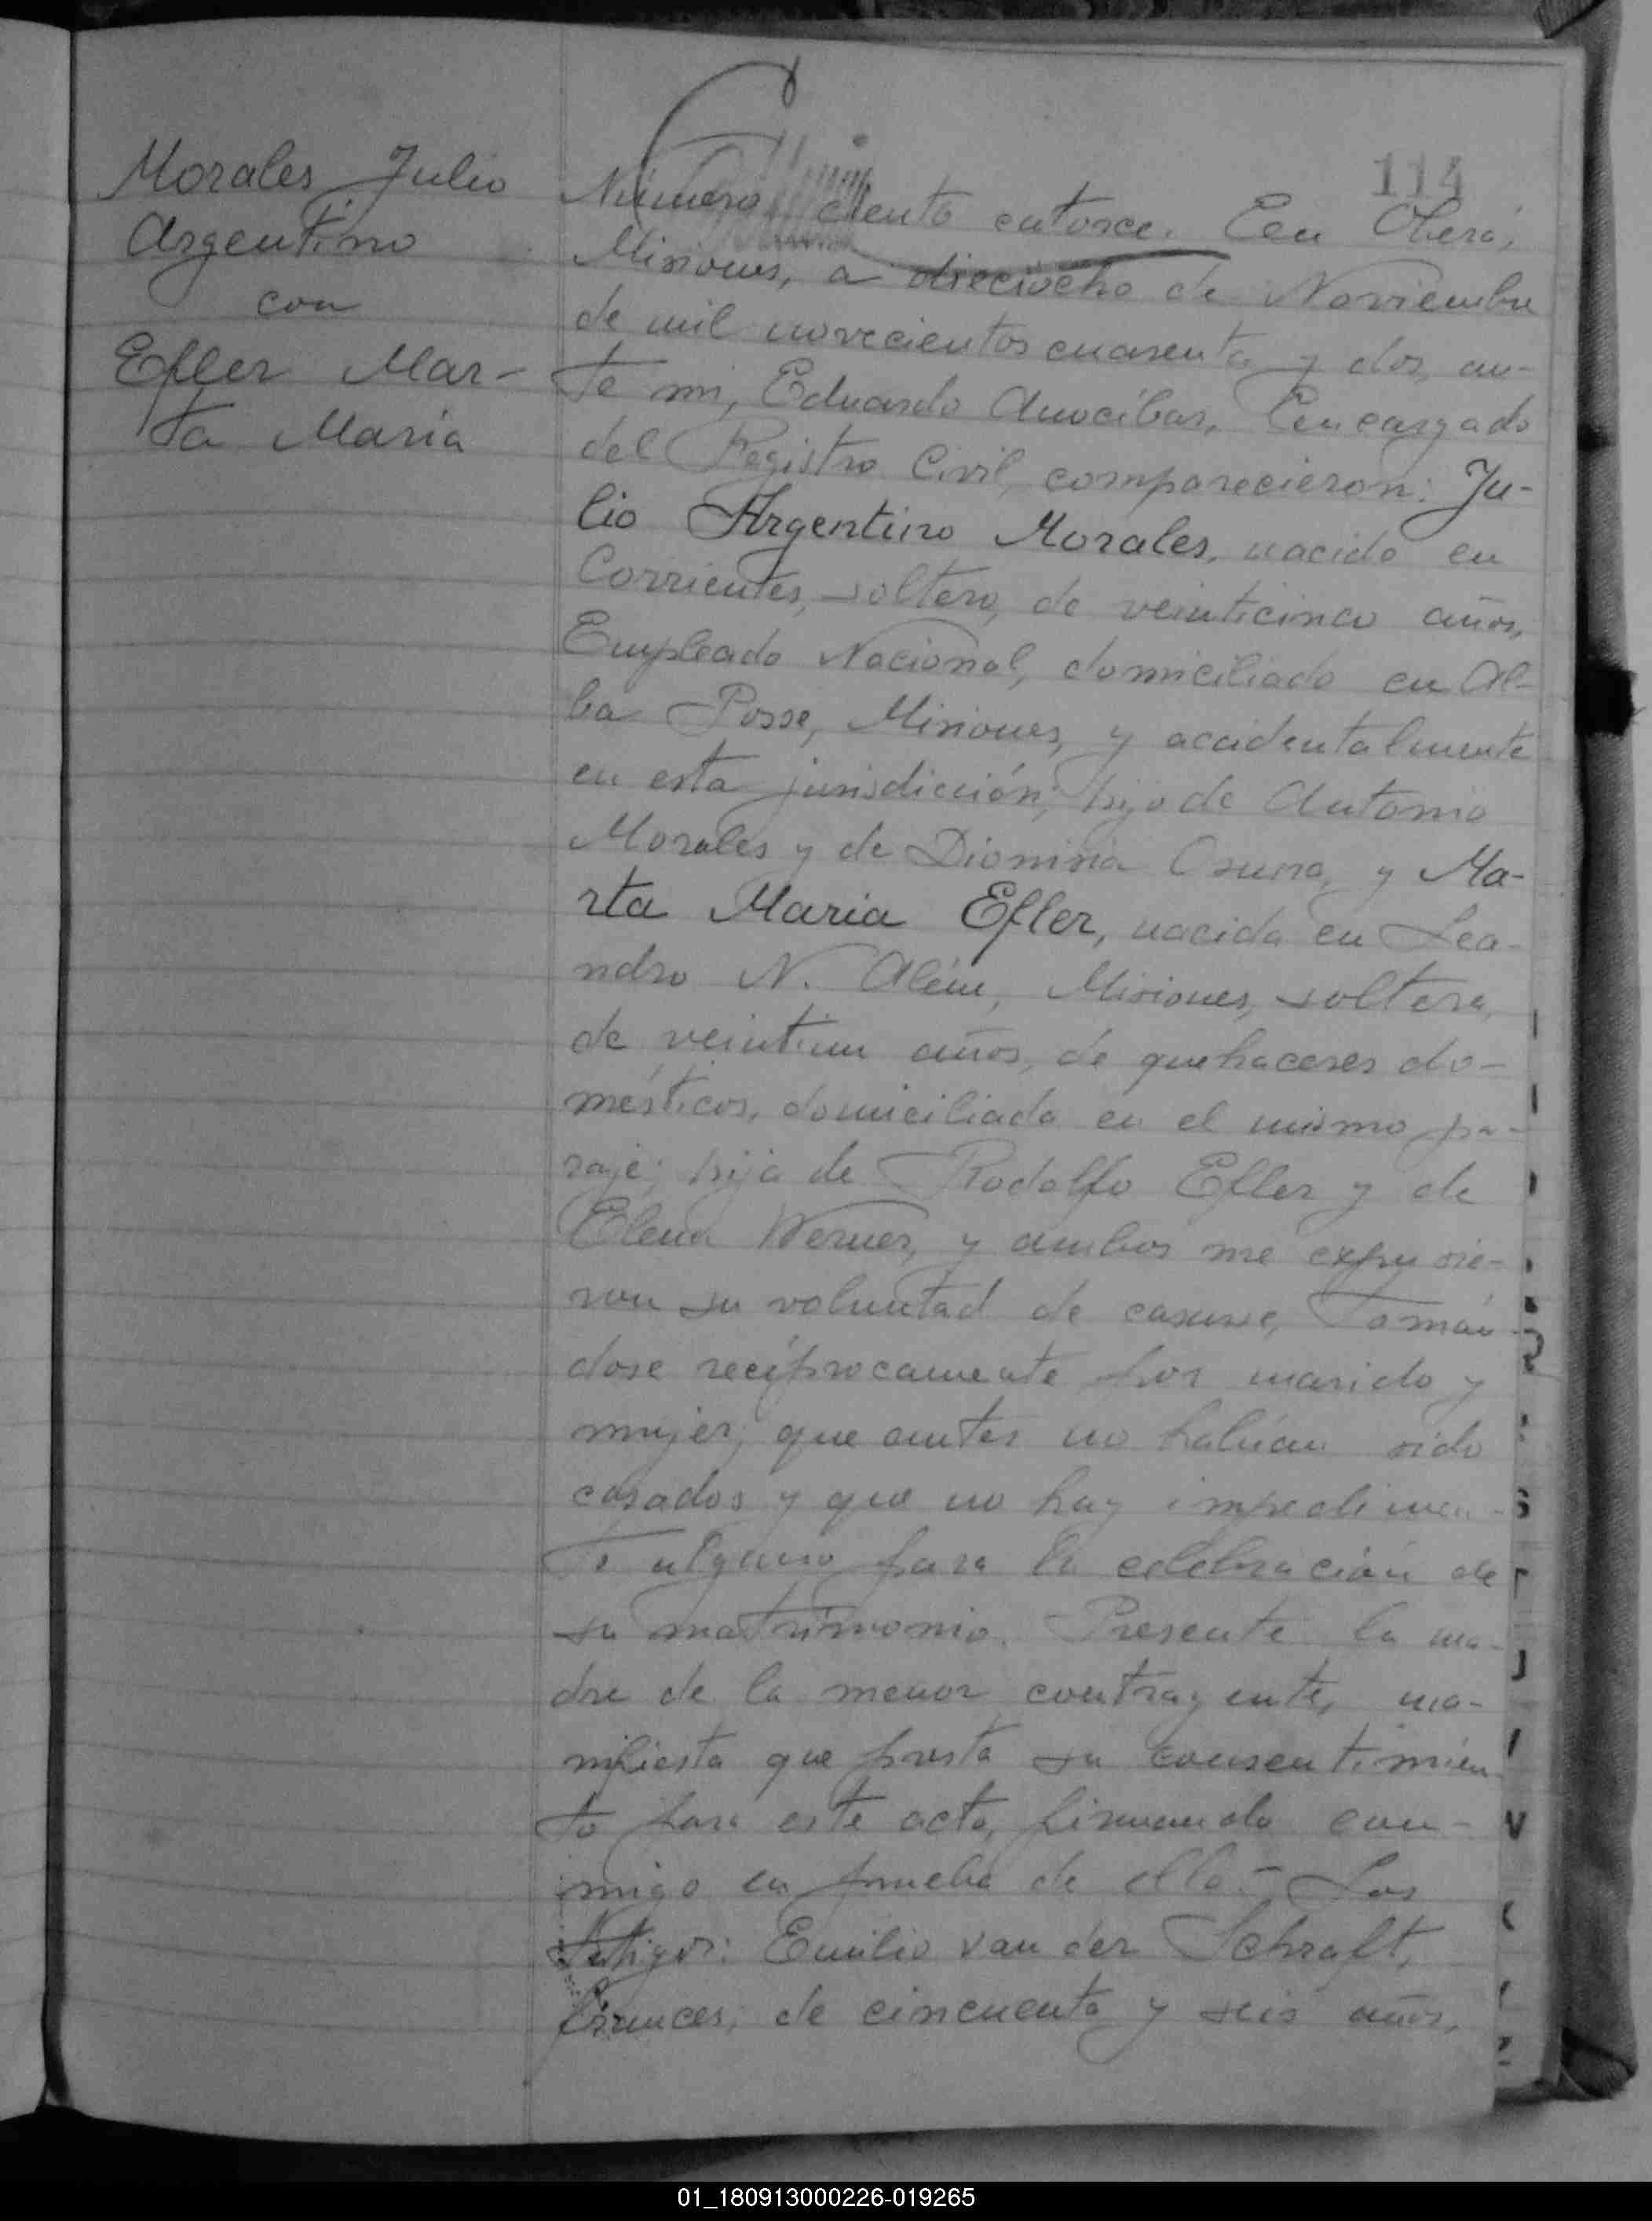 114
Morales Julio
Argentino
con
Efler Mar-
ta Maria
Número ciento catorce. En Oberá,
Misiones, a dieciocho de Noviembre
de mil novecientos cuarenta y dos, an-
te mi, Eduardo Amocibar, Encargado
del Registro Civil, comparecieron: Ju-
lio Argentino Morales, nacido en
Corrientes, soltero, de veinticinco años,
Empleado Nacional, domiciliado en Al-
ba Posse, Misiones, y accidentalmente
en esta jurisdicción; hijo de Antonio
Morales y de Dionisia Osuna, y Ma-
rta Maria Efler, nacida en Lea-
ndro N. Além, Misiones, soltera,
de veintiun años, de quehaceres do-
mésticos, domiciliada en el mismo pa-
raje; hija de Rodolfo Efler y de
Elena Werner, y ambos me expusie-
ron su voluntad de casarse, Tomán-
dose recíprocamente por marido y
mujer; que antes no habían sido
casados y que no hay impedimen-
to alguno para la celebración de
su matrimonio. Presente la ma-
dre de la menor contrayente, ma-
nifiesta que presta su consentimien-
to para este acto, firmando con-
migo en prueba de ello.- Los
testigos: Emilio van der Schraft,
frances, de cincuenta y seis años,
01_180913000226-019265